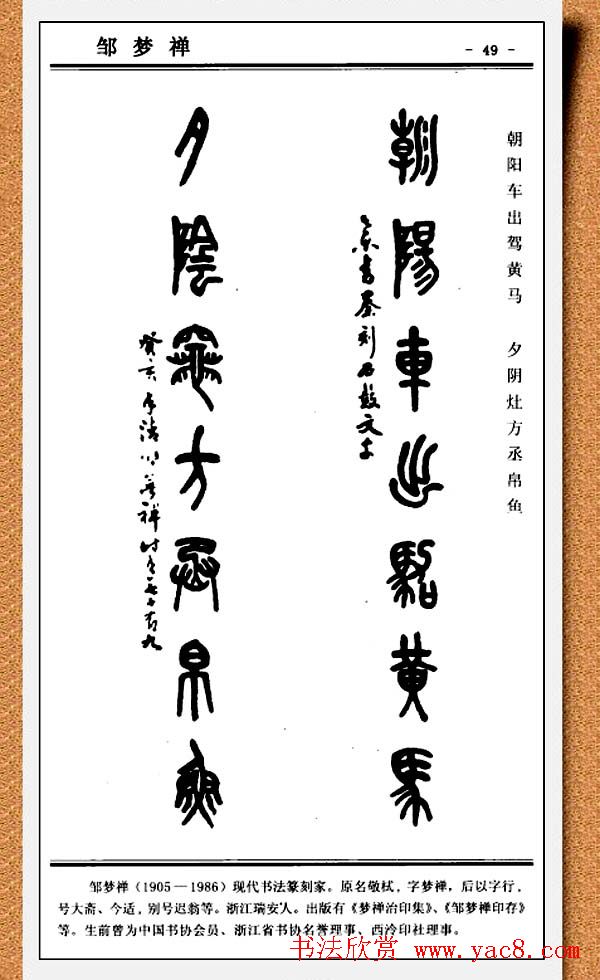 邹梦禅
- 49 -
朝阳车出驾黄马 夕阴灶方丞帛鱼
朝陽車出駕黄馬
集書秦刻石鼓文字
夕陰竈方丞帛魚
癸亥年清明夢禅时年七十有九
邹梦禅（1905—1986）现代书法篆刻家。原名敬栻，字梦禅，后以字行，
号大斋、今适，别号迟翁等。浙江瑞安人。出版有《梦禅治印集》、《邹梦禅印存》
等。生前曾为中国书协会员、浙江省书协名誉理事、西泠印社理事。
书法欣赏 www.yac8.com